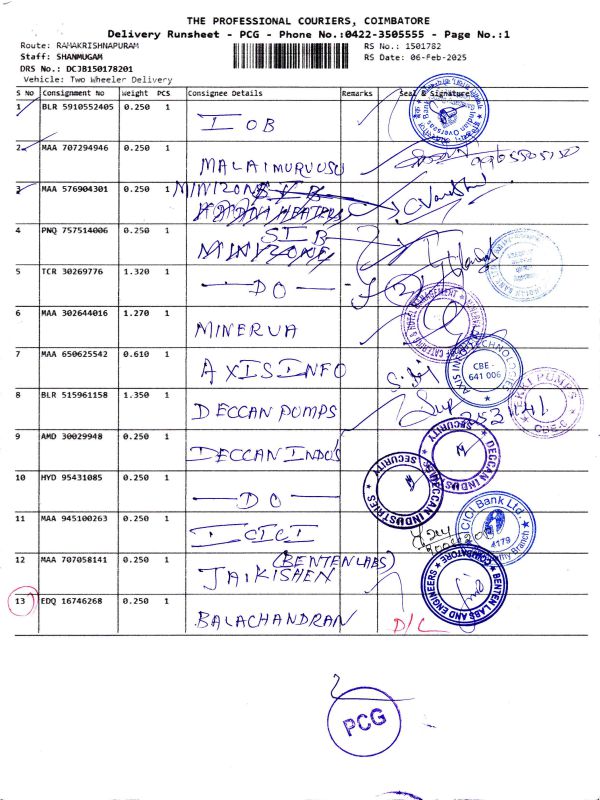 THE PROFESSIONAL COURIERS, COIMBATORE
Delivery Runsheet - PCG - Phone No.:0422-3505555 - Page No.:1
Route: RAMAKRISHNAPURAM
RS No.: 1501782
Staff: SHANMUGAM
RS Date: 06-Feb-2025
DRS No.: DCJB150178201
Vehicle: Two Wheeler Delivery
S No Consignment No Weight PCS Consignee Details Remarks Seal & Signature
BLR 5910552405 0.250 1 IOB
2 MAA 707294946 0.250 1 MALAIMURUOSU
3 MAA 576904301 0.250 1 MINIZONE
4 PNQ 757514006 0.250 1 SIB
MINIZONE
5 TCR 30269776 1.320 1 DO
6 MAA 302644016 1.270 1 MINERVA
7 MAA 650625542 0.610 1 AXIS INFO
AXIS INFO TECHNOLOGIES
CBE - 641 006
8 BLR 515961158 1.350 1 DECCAN PUMPS
9 AMD 30029948 0.250 1 DECCAN INDUS
DECCAN INDUSTRIES SECURITY
10 HYD 95431085 0.250 1 DO
DECCAN INDUSTRIES SECURITY
11 MAA 945100263 0.250 1 ICICI
ICICI Bank Ltd.
4179
12 MAA 707058141 0.250 1 (BENTEN LABS)
JAIKISHEN
BENTEN LABS AND ENGINEERS COIMBATORE
13 EDQ 16746268 0.250 1 BALACHANDRAN D/L
PCG